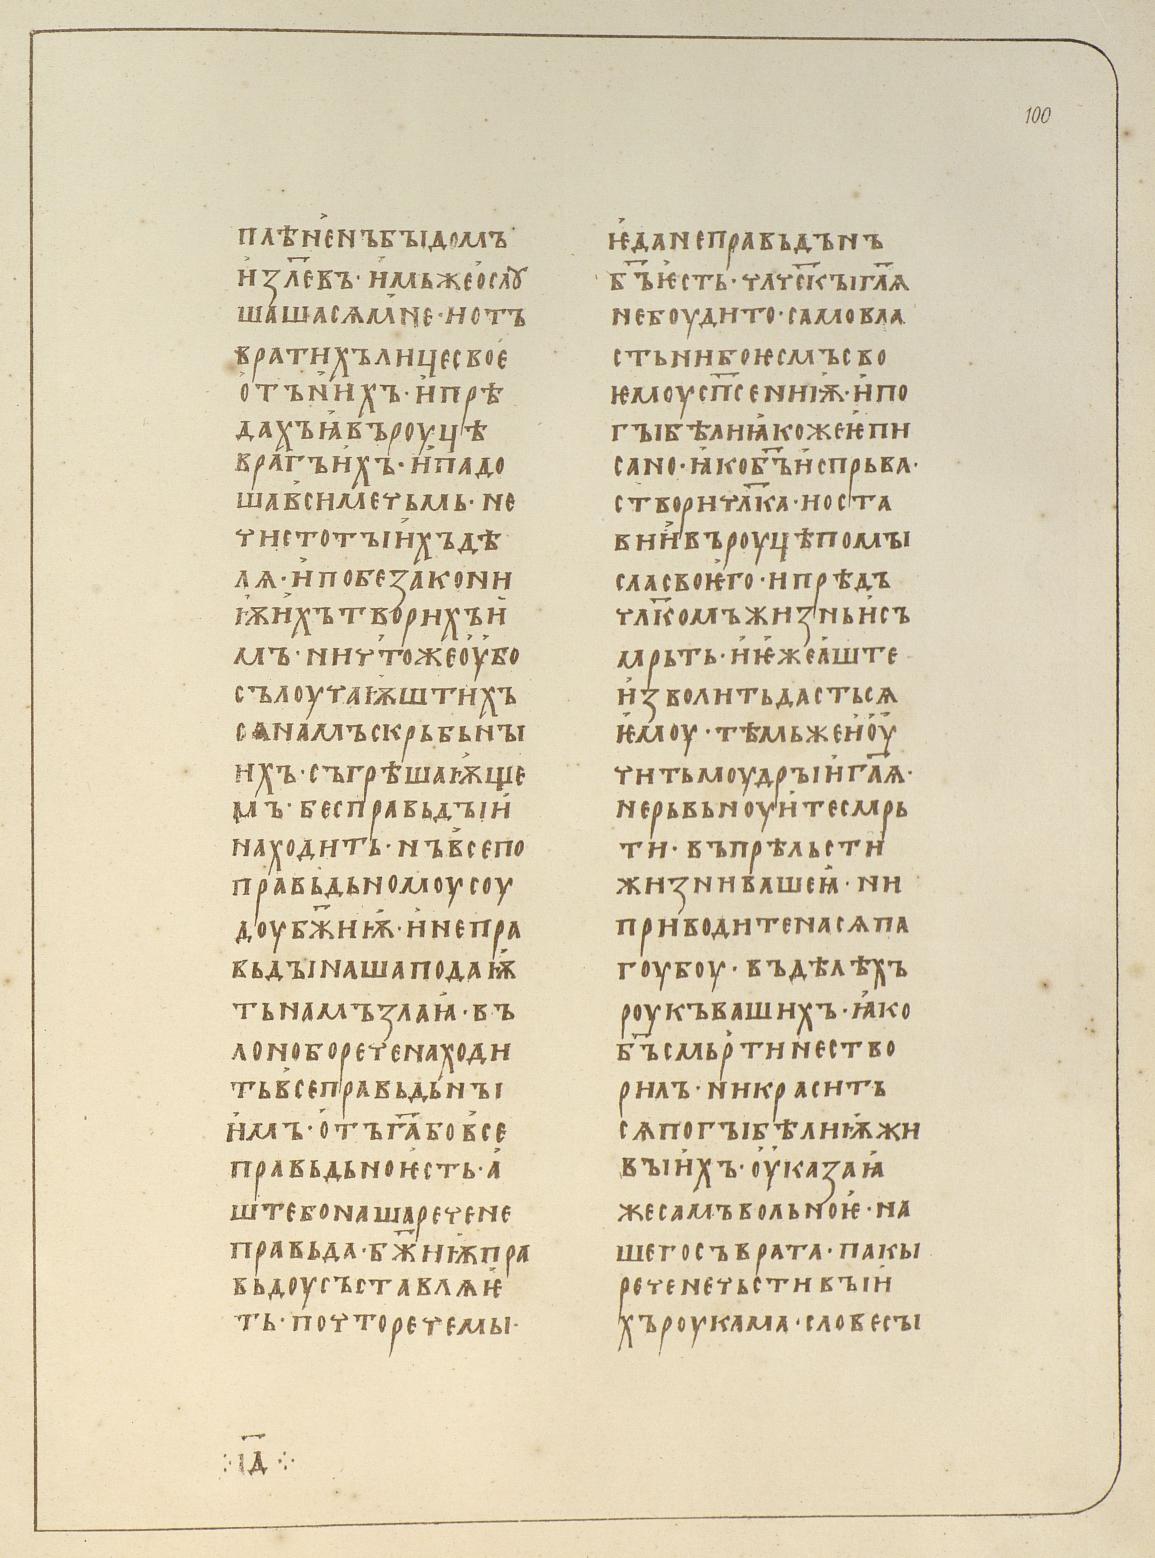 100
плѣненъбꙑдомъ
и҅ꙁл҃евъ· и҅мьжеослꙋ
шашасѧмне·нотъ
вратихълицесвое
отън҅ихъ·и҅прѣ
дахъꙗвъроуцѣ
врагъи҅хъ·и҅падо
шавсимечьмь·не
чистотꙑи҅хъдѣ
лѧ·и҅побеꙁакони
ѭи҅хътворихъи҅
мъ·ничтожеоубо
сълоучаѭштихъ
сѧнамъскрьбьнꙑ
ихъ·съгрѣшаѭще
мъ·бесправьдъıи҅
находить·нъвсепо
правьдьномоусоу
доубж҃иѭ·и҅непра
вьдꙑнашаподаѭ
тьнамъꙁлаꙗ·въ
лонобореченаходи
тьвсеправьдьнꙑ
и҅мъ·отъг҃абовсе
правьдьноѥсть·а
штебонашаречене
правьда·бж҃иѭпра
вьдоусъставлѧѥ
ть·почторечемы·
ѥданеправьдънъ
б҃ъѥсть·члч҃скꙑгл҃ѧ
небоудито·самовла
стьнибоѥсмъсво
ѥмоусп҃сениѭ·и҅по
гꙑбѣлиꙗкожеѥпи
сано·ꙗкоб҃ъи҅спрьва·
створичл҃ка·носта
вии҅въроуцѣпомꙑ
сласвоѥго·ипрѣдъ
чл҃комъжиꙁньи҅съ
мрьть·и҅ѥжеаште
и҅ꙁволитьдастьсѧ
ѥмоу·тѣмьжеи҅оу
читьмоудрꙑи҅гл҃ѧ·
нерьвьноуи҅тесмрь
ти·въпрѣльсти
жиꙁнивашеꙗ·ни
приводитенасѧпа
гоубоу·въдѣлѣхъ
роукъвашихъ·ꙗко
б҃ъсмьртинество
рилъ·никраситъ
сѧпогꙑбѣлиѭжи
вꙑи҅хъ·оуказаꙗ
жесамъвольноѥ·на
шегосъврата·пакы
реченечьстивꙑи҅
хъроукама·словесꙑ
·:· і҃д ·:·